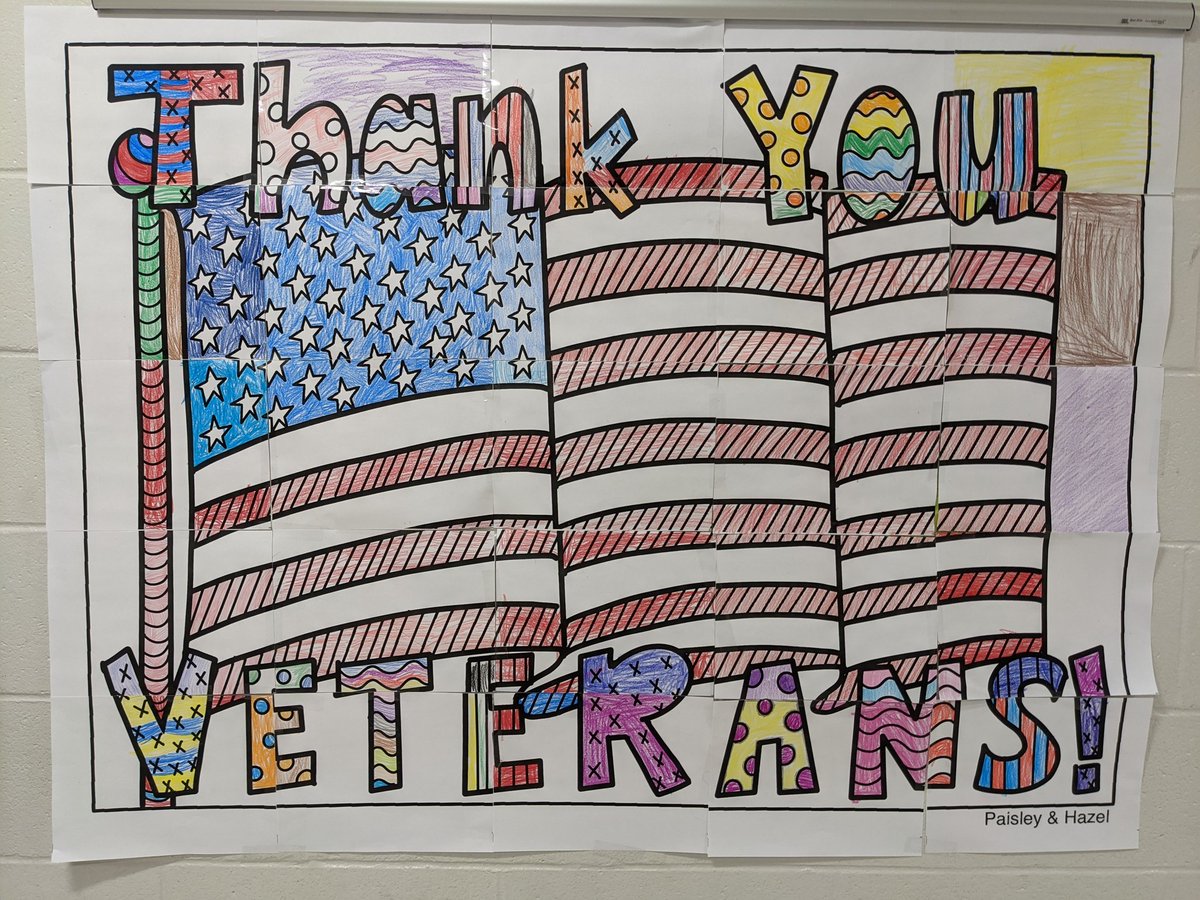 Thank You
VETERANS!
Paisley & Hazel